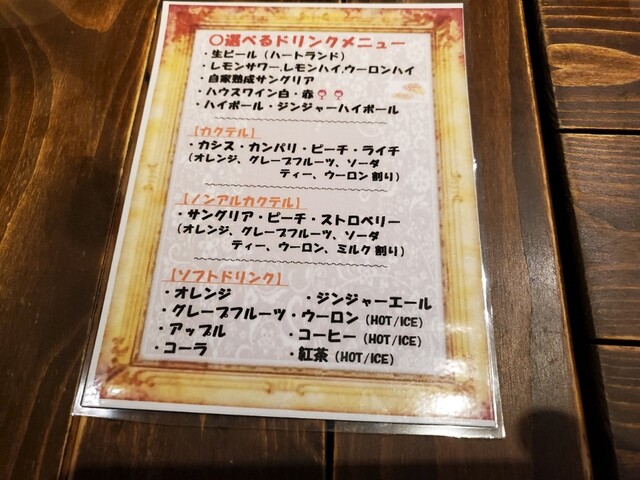 ○選べるドリンクメニュー
・生ビール（ハートランド）
・レモンサワー,レモンハイ,ウーロンハイ
・自家熟成サングリア
・ハウスワイン白・赤
・ハイボール・ジンジャーハイボール
【カクテル】
・カシス・カンパリ・ピーチ・ライチ
（オレンジ、グレープフルーツ、ソーダ
ティー、ウーロン割り）
【ノンアルカクテル】
・サングリア・ピーチ・ストロベリー
（オレンジ、グレープフルーツ、ソーダ
ティー、ウーロン、ミルク割り）
【ソフトドリンク】
・オレンジ ・ジンジャーエール
・グレープフルーツ・ウーロン（HOT/ICE）
・アップル ・コーヒー（HOT/ICE）
・コーラ ・紅茶（HOT/ICE）